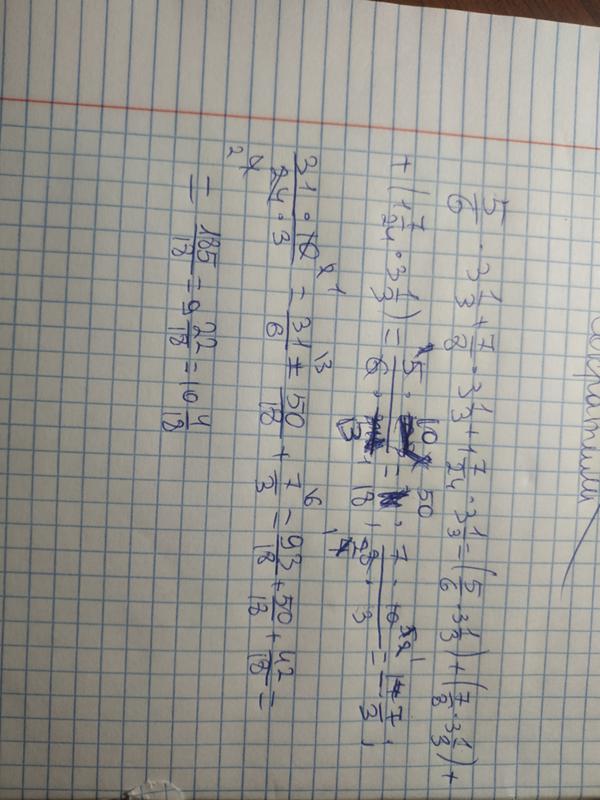 Сократили
5/6 · 3 1/3 + 7/8 · 3 1/3 + 1 7/24 · 3 1/3 = (5/6 · 3 1/3) + (7/8 · 3 1/3) +
+ (1 7/24 · 3 1/3) = 5 · 10/6 · 3 = 50/18; 7 · 10/8 · 3 = 7/3;
31 · 10/24 · 3 = 31/6 + 50/18 + 7/3 = 93/18 + 50/18 + 42/18 =
= 185/18 = 9 22/18 = 10 4/18